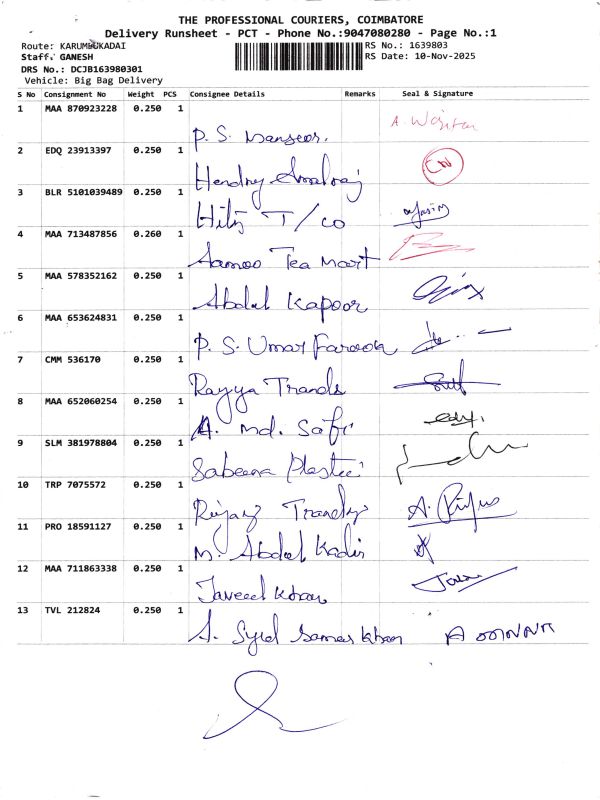 THE PROFESSIONAL COURIERS, COIMBATORE
Delivery Runsheet - PCT - Phone No.:9047080280 - Page No.:1
Route: KARUMBUKADAI RS No.: 1639803
Staff: GANESH RS Date: 10-Nov-2025
DRS No.: DCJB163980301
Vehicle: Big Bag Delivery
S No Consignment No Weight PCS Consignee Details Remarks Seal & Signature
1 MAA 870923228 0.250 1
P. S. Mansoor.
2 EDQ 23913397 0.250 1 CN
Hendry Amalraj
3 BLR 5101039489 0.250 1
T/co
4 MAA 713487856 0.260 1
Tea Mart
5 MAA 578352162 0.250 1
Abdul Kapoor
6 MAA 653624831 0.250 1
P. S. Umar Farook
7 CMM 536170 0.250 1
Rayya Trands
8 MAA 652060254 0.250 1
A. Md. Safi
9 SLM 381978804 0.250 1
Sabeena
10 TRP 7075572 0.250 1
11 PRO 18591127 0.250 1
M. Abdul Kadir
12 MAA 711863338 0.250 1
Javeed Khan
13 TVL 212824 0.250 1
A. Syed Khan